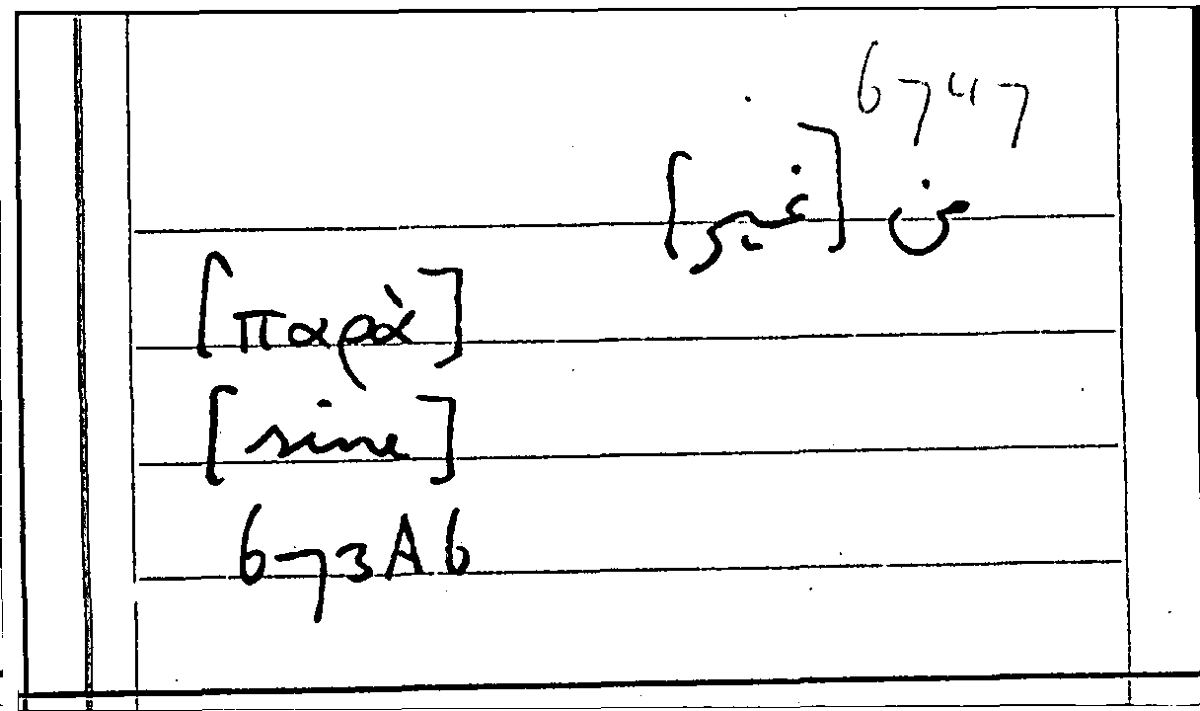 6747
من [غير]
[παρὰ]
[sine]
673A6